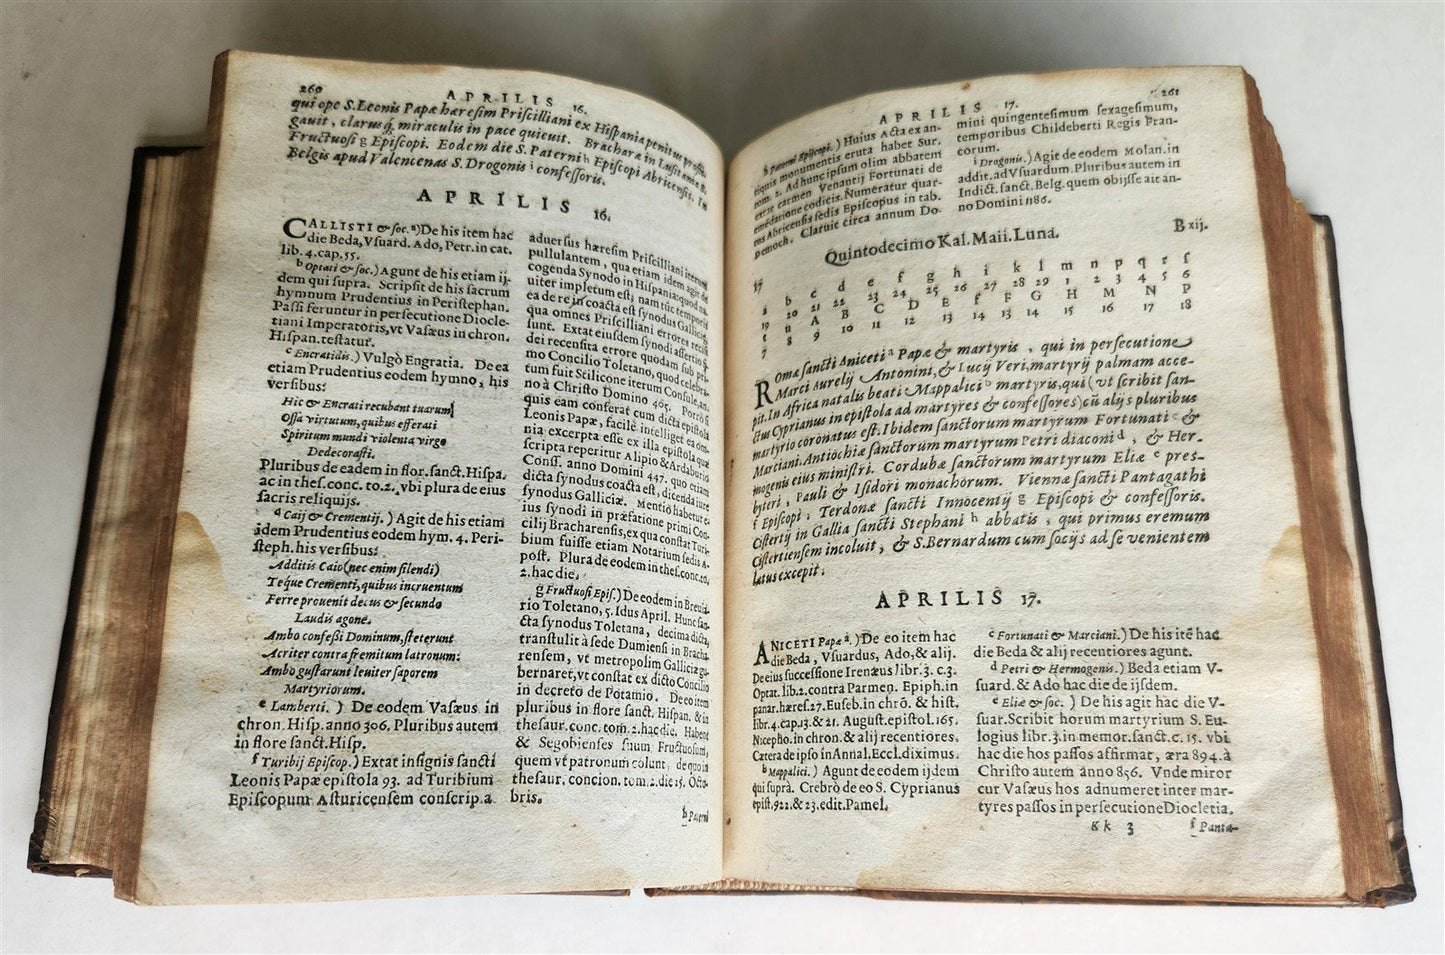 260
APRILIS 16.
qui ope S. Leonis Papæ hæresim Priscilliani ex Hispania penitus
gauit, clarus miraculis in pace quieuit. Bracharæ in Lusitania
Fructuosi g Episcopi. Eodem die S. Paterni h Episcopi Abricensis. In
Belgis apud Valencenas S. Drogonis i confessoris.
APRILIS 16.
CALLISTI & soc. a) De his item hac
die Beda, Vsuard. Ado, Petr. in cat.
lib. 4. cap. 55.
b Optati & soc.) Agunt de his etiam ij-
dem qui supra. Scripsit de his sacrum
hymnum Prudentius in Peristephan.
Passi feruntur in persecutione Diocle-
tiani Imperatoris, vt Vasæus in chron.
Hispan. testatur.
c Encratidis.) Vulgò Engratia. De ea
etiam Prudentius eodem hymno, his
versibus:
Hic & Encrati recubant tuarum
Ossa virtutum, quibus efferati
Spiritum mundi violenta virgo
Dedecorasti.
Pluribus de eadem in flor. sanct. Hispa.
ac in thes. conc. to. 2. vbi plura de eius
sacris reliquijs.
d Caij & Crementij.) Agit de his etiam
idem Prudentius eodem hym. 4. Peri-
steph. his versibus:
Additis Caio (nec enim silendi)
Teque Crementi, quibus incruentum
Ferre prouenit decus & secundo
Laudis agone.
Ambo confessi Dominum, steterunt
Acriter contra fremitum latronum:
Ambo gustarunt leuiter saporem
Martyriorum.
e Lamberti.) De eodem Vasæus in
chron. Hisp. anno 306. Pluribus autem
in flore sanct. Hisp.
f Turibij Episcop.) Extat insignis sancti
Leonis Papæ epistola 93. ad Turibium
Episcopum Asturicensem conscrip.a
aduersus hæresim Priscilliani iterum
pullulantem, qua etiam idem agit de
cogenda Synodo in Hispania: quod na-
uiter impletum est; nam tūc temporis
ea de re in coacta est synodus Gallicię,
qua omnes Priscilliani errores reiecti
sunt. Extat eiusdem synodi assertio
dei recensita errore quodam sub pri-
mo Concilio Toletano, quod celebra-
tum fuit Stilicone iterum Consule, an-
no à Christo Domino 405. Porrò si
quis eam conferat cum dicta epistola
Leonis Papæ, facilè intelliget ea om-
nia excerpta esse ex illa epistola quæ
scripta reperitur Alipio & Ardaburio
Conss. anno Domini 447. quo etiam
dicta synodus coacta est, dicenda iure
synodus Galliciæ. Mentio habetur e-
ius synodi in præfatione primi Con-
cilij Bracharensis, ex qua constat Turi-
bium fuisse etiam Notarium sedis A-
post. Plura de eodem in thes. conc. to.
2. hac die.
g Fructuosi Epis.) De eodem in Breuia-
rio Toletano, 5. Idus April. Hunc san-
cta synodus Toletana, decima dicta,
transtulit à sede Dumiensi in Bracha-
rensem, vt metropolim Galliciæ gu-
bernaret, vt constat ex dicto Concilio
in decreto de Potamio. De eo item
pluribus in flore sanct. Hispan. & in
thesaur. conc. tom. 2. hac die. Habent
& Segobienses suum Fructuosum,
quem vt patronum colunt, de quo in
thesaur. concion. tom. 2. die 25. Octo-
bris.
h Paterni
APRILIS 17.
261
h Paterni Episcopi.) Huius Acta ex an-
tiquis monumentis eruta habet Sur.
tom. 2. Ad hunc ipsum olim abbatem
extat carmen Venantij Fortunati de
emēdatione codicis. Numeratur quar-
tus Abricensis sedis Episcopus in tab.
Democh. Claruit circa annum Do-
mini quingentesimum sexagesimum,
temporibus Childeberti Regis Fran-
corum.
i Drogonis.) Agit de eodem Molan. in
addit. ad Vsuardum. Pluribus autem in
Indict. sanct. Belg. quem obijsse ait an-
no Domini 1186.
Quintodecimo Kal. Maii. Luna.
B xij.
17
a b c d e f g h i k l m n p q r s
19 20 21 22 23 24 25 26 27 28 29 1 2 3 4 5 6
t u A B C D E f F G H M N P
7 8 9 10 11 12 13 14 14 15 16 17 18
Romæ sancti Aniceti a Papæ & martyris, qui in persecutione
Marci Aurelij Antonini, & Lucij Veri, martyrij palmam acce-
pit. In Africa natalis beati Mappalici b martyris, qui (vt scribit san-
ctus Cyprianus in epistola ad martyres & confessores) cū alijs pluribus
martyrio coronatus est. Ibidem sanctorum martyrum Fortunati c &
Marciani. Antiochiæ sanctorum martyrum Petri diaconi d, & Her-
mogenis eius ministri. Cordubæ sanctorum martyrum Eliæ e pres-
byteri, Pauli & Isidori monachorum. Viennæ sancti Pantagathi
f Episcopi. Terdonæ sancti Innocentij g Episcopi & confessoris.
Cistertij in Gallia sancti Stephani h abbatis, qui primus eremum
Cistertiensem incoluit, & S. Bernardum cum socijs ad se venientem
lætus excepit.
APRILIS 17.
ANICETI Papæ a.) De eo item hac
die Beda, Vsuardus, Ado, & alij.
De eius successione Irenæus libr. 3. c. 3.
Optat. lib. 2. contra Parmen. Epiph. in
panar. hæres. 27. Euseb. in chrō. & hist.
libr. 4. cap. 13. & 21. August. epistol. 165.
Nicepho. in chron. & alij recentiores.
Cætera de ipso in Annal. Eccl. diximus.
b Mappalici.) Agunt de eodem ijdem
qui suprà. Crebrò de eo S. Cyprianus
epist. 922. & 23. edit. Pamel.
c Fortunati & Marciani.) De his itē hac
die Beda & alij recentiores agunt.
d Petri & Hermogenis.) Beda etiam V-
suard. & Ado hac die de ijsdem.
e Eliæ & soc.) De his agit hac die V-
suar. Scribit horum martyrium S. Eu-
logius libr. 3. in memor. sanct. c. 15. vbi
hac die hos passos affirmat, æra 894. à
Christo autem anno 856. Vnde miror
cur Vasæus hos adnumeret inter mar-
tyres passos in persecutione Diocletia.
Kk 3
f Panta-